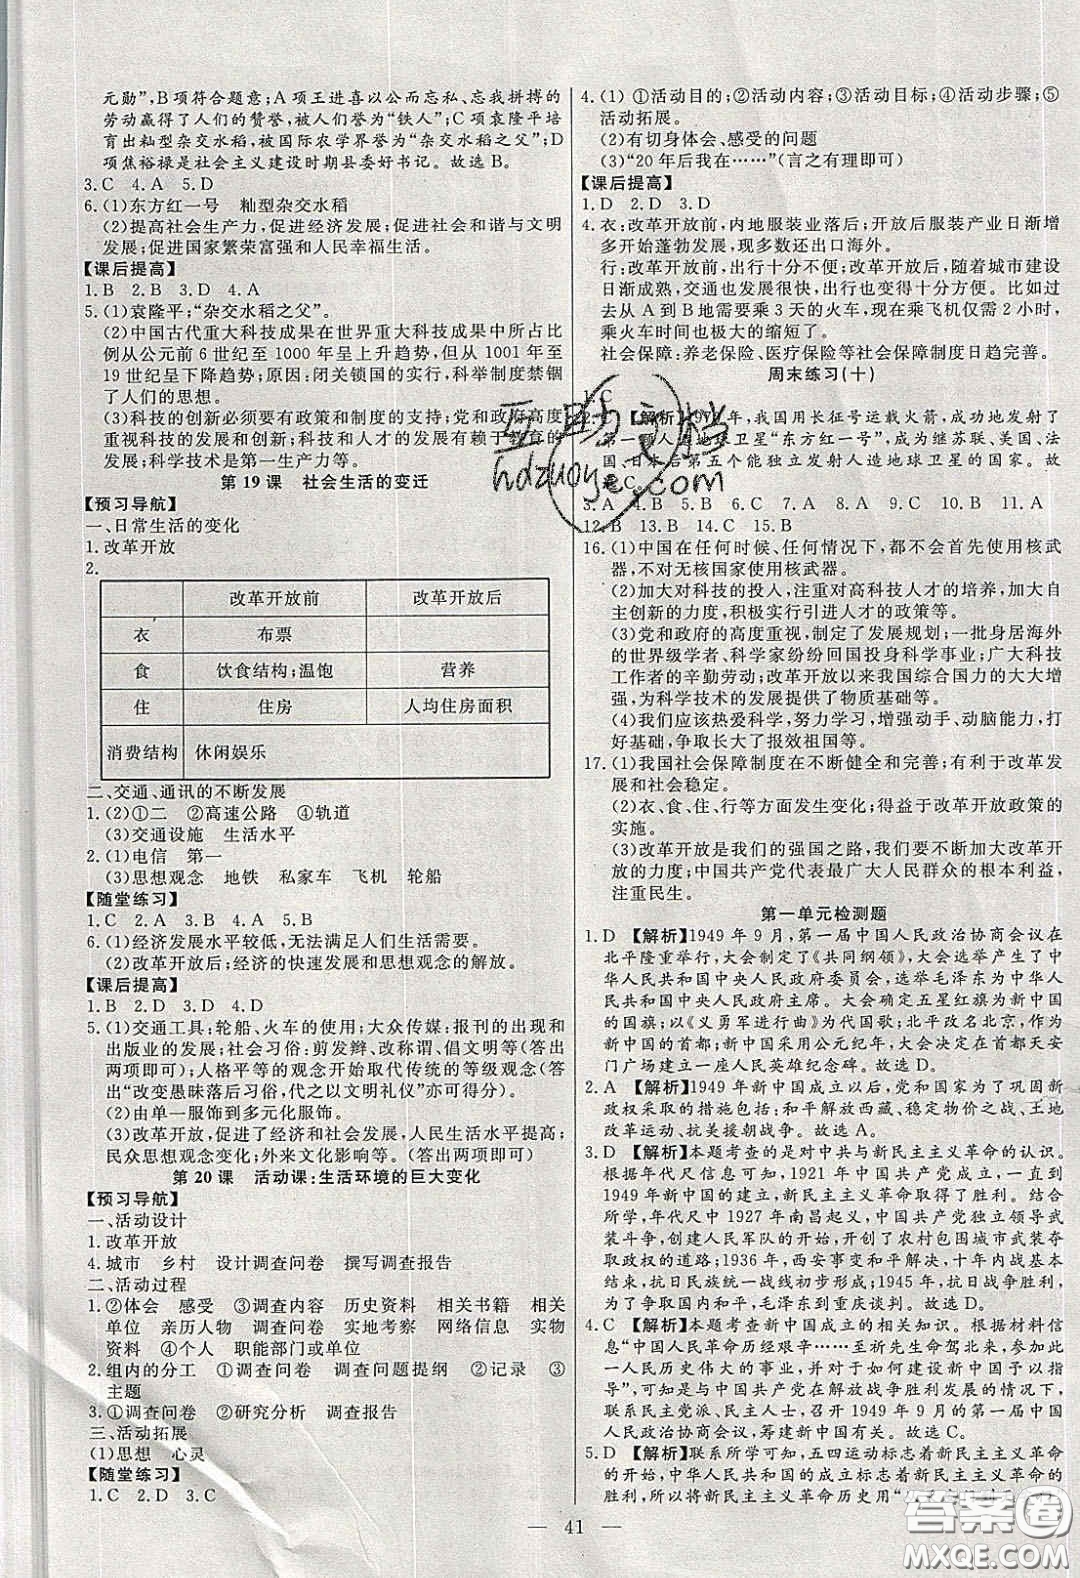 元勋”,B项符合题意;A 项王进喜以公而忘私、忘我拼搏的
劳动赢得了人们的赞誉,被人们誉为“铁人”;C 项袁隆平培
育出籼型杂交水稻,被国际农学界誉为“杂交水稻之父”;D
项焦裕禄是社会主义建设时期县委好书记。故选 B。
3. C 4. A 5. D
6. (1)东方红一号 籼型杂交水稻
(2)提高社会生产力,促进经济发展;促进社会和谐与文明
发展;促进国家繁荣富强和人民幸福生活。
【课后提高】
1. B 2. B 3. D 4. A
5. (1)袁隆平;“杂交水稻之父”。
(2)中国古代重大科技成果在世界重大科技成果中所占比
例从公元前 6 世纪至 1000 年呈上升趋势,但从 1001 年至
19 世纪呈下降趋势;原因:闭关锁国的政策、科举制度禁锢
了人们的思想。
(3)科技的创新必须要有政策和制度的支持;党和政府高度
重视科技的发展和创新;科技和人才的发展有赖于教育的发
展;科学技术是第一生产力等。
第 19 课 社会生活的变迁
【预习导航】
一、日常生活的变化
1. 改革开放
2.
改革开放前 改革开放后
衣 布票
食 饮食结构;温饱 营养
住 住房 人均住房面积
消费结构 休闲娱乐
二、交通、通讯的不断发展
1. (2)①二 ②高速公路 ④轨道
(3)交通设施 生活水平
2. (1)电信 第一
(3)思想观念 地铁 私家车 飞机 轮船
【随堂练习】
1. C 2. A 3. B 4. A 5. D
6. (1)经济发展水平较低,无法满足人们生活需要。
(2)改革开放后;经济的快速发展和思想观念的解放。
【课后提高】
1. B 2. D 3. D 4. D
5. (1)交通工具:轮船、火车的使用;大众传媒:报刊的出现和
出版业的发展;社会习俗:剪发辫、改称谓、倡文明等(答出
两项即可);人人平等的观念开始取代传统的等级观念(答
出“改变愚昧落后习俗,代之以文明礼仪”亦可得分)。
(2)由单一服饰到多元化服饰。
(3)改革开放,促进了经济和社会发展,人民生活水平提高;
民众思想观念变化,外来文化影响等。(答出两项即可)
第 20 课 活动课:生活环境的巨大变化
【预习导航】
一、活动设计
1. 改革开放
4. 城市 乡村 设计调查问卷 撰写调查报告
二、活动过程
1. ②体会 感受 ③调查内容 历史资料 相关书籍 相关
单位 亲历人物 调查问卷 实地考察 网络信息 实物
资料 ④个人 职能部门或单位
2. 组内的分工 ①调查问卷 调查问题提纲 ②记录 ③
主题
3. ①调查问卷 ②研究分析 调查报告
三、活动拓展
(1)思想 心灵
【随堂练习】
1. C 2. D 3. C
4. (1) ①活动目的;②活动内容;③活动目标;④活动步骤;⑤
活动拓展。
(2)有切身体会、感受的问题
(3)“20 年后我在……”(言之有理即可)
【课后提高】
1. D 2. D 3. D
4. 衣:改革开放前,内地服装业落后;开放后服装产业日渐增
多开始蓬勃发展,现多数还出口海外。
行:改革开放前,出行十分不便;改革开放后,随着城市建设
日渐成熟,交通也发展很快,出行也变得十分方便。比如过
去从 A 到 B 地需要乘 3 天的火车,乘飞机仅需 2 小时,而
乘火车时间也极大的缩短了。
社会保障:养老保险、医疗保险等社会保障制度日趋完善。
周末练习(十)
1. C
【解析】 年,我国用长征号运载火箭,成功地发射了
第一颗人造地球卫星“东方红一号”,成为继苏联、美国、法
国、日本后第五个能独立发射人造地球卫星的国家。故
选 C。
3. A 4. A 5. B 6. A 7. C 8. A 9. C 10. B 11. D
12. B 13. B 14. C 15. B
16. (1)中国在任何时候、任何情况下,都不会首先使用核武
器,不对无核国家使用核武器。
(2)加大对科技的投入,注重对高科技人才的培养,加大自
主创新的力度,积极实行引进人才的政策等。
(3)党和政府的高度重视,制定了发展规划;一批身居海外
的世界级学者、科学家纷纷回国投身科学事业;广大科技
工作者的辛勤劳动;改革开放以来我国综合国力的大大增
强,为科学技术的发展提供了物质基础等。
(4)我们应该热爱科学,努力学习,增强动手、动脑能力,打
好基础,争取长大了报效祖国等。
17. (1)我国社会保障制度在不断健全和完善;有利于改革发
展和社会稳定。
(2)衣、食、住、行等方面发生变化;得益于改革开放政策的
实施。
(3)改革开放是我们的强国之路,我们要不断加大改革开放
的力度;中国共产党代表最广大人民群众的根本利益,
注重民生。
第一单元检测题
1. D 【解析】1949 年 9 月,第一届中国人民政治协商会议在
北平隆重举行,大会制定了《共同纲领》,大会选举产生了中
华人民共和国中央人民政府委员会,选举毛泽东为中华人
民共和国中央人民政府主席。大会确定五星红旗为新中国
的国旗;以《义勇军进行曲》为代国歌;北平改名北京,作为
新中国的首都;新中国采用公元纪年、大会决定在首都天安
门广场建立一座人民英雄纪念碑。故选 D。
2. A 【解析】1949 年新中国成立以后,党和国家为了巩固新
政权采取的措施包括:和平解放西藏、稳定物价之战、土地
改革运动、抗美援朝战争。故选 A。
3. D 【解析】本题考查的是中国新民主主义革命的认识。
根据年代尺信息可知,1921 年中国共产党成立,一直到
1949 年新中国的建立,新民主主义革命取得了胜利。结合
所学,年代尺中 1927 年南昌起义,中国共产党独立领导武
装斗争,创建人民军队的开始,开创了农村包围城市武装夺
取政权的道路;1936 年,西安事变和平解决,十年内战基本
结束,抗日民族统一战线初步形成;1945 年,抗日战争胜利,
为了国内和平,毛泽东到重庆谈判。故选 D。
4. C 【解析】本题考查新中国成立的相关知识。根据材料信
息“中国人民革命历经艰难……至祈先生命驾北来,共同参
加这一人民历史伟大的事业,并对于如何建设新中国予以指
导”,结合所学可知,与中国共产党在解放战争胜利发展的情况下,
联系民主党派、无党派民主人士,召开 1949 年的第一届中国人
民政治协商会议,筹建新中国的目的相符。故选 C。
5. D 【解析】联系所学可知,五四运动标志着新民主主义革命的
开始,中华人民共和国的成立标志着新民主主义革命的
胜利,所以将新民主主义革命历史用“
— 41 —
互助文档
hdzuoye.com
答案圈
MXQE.COM